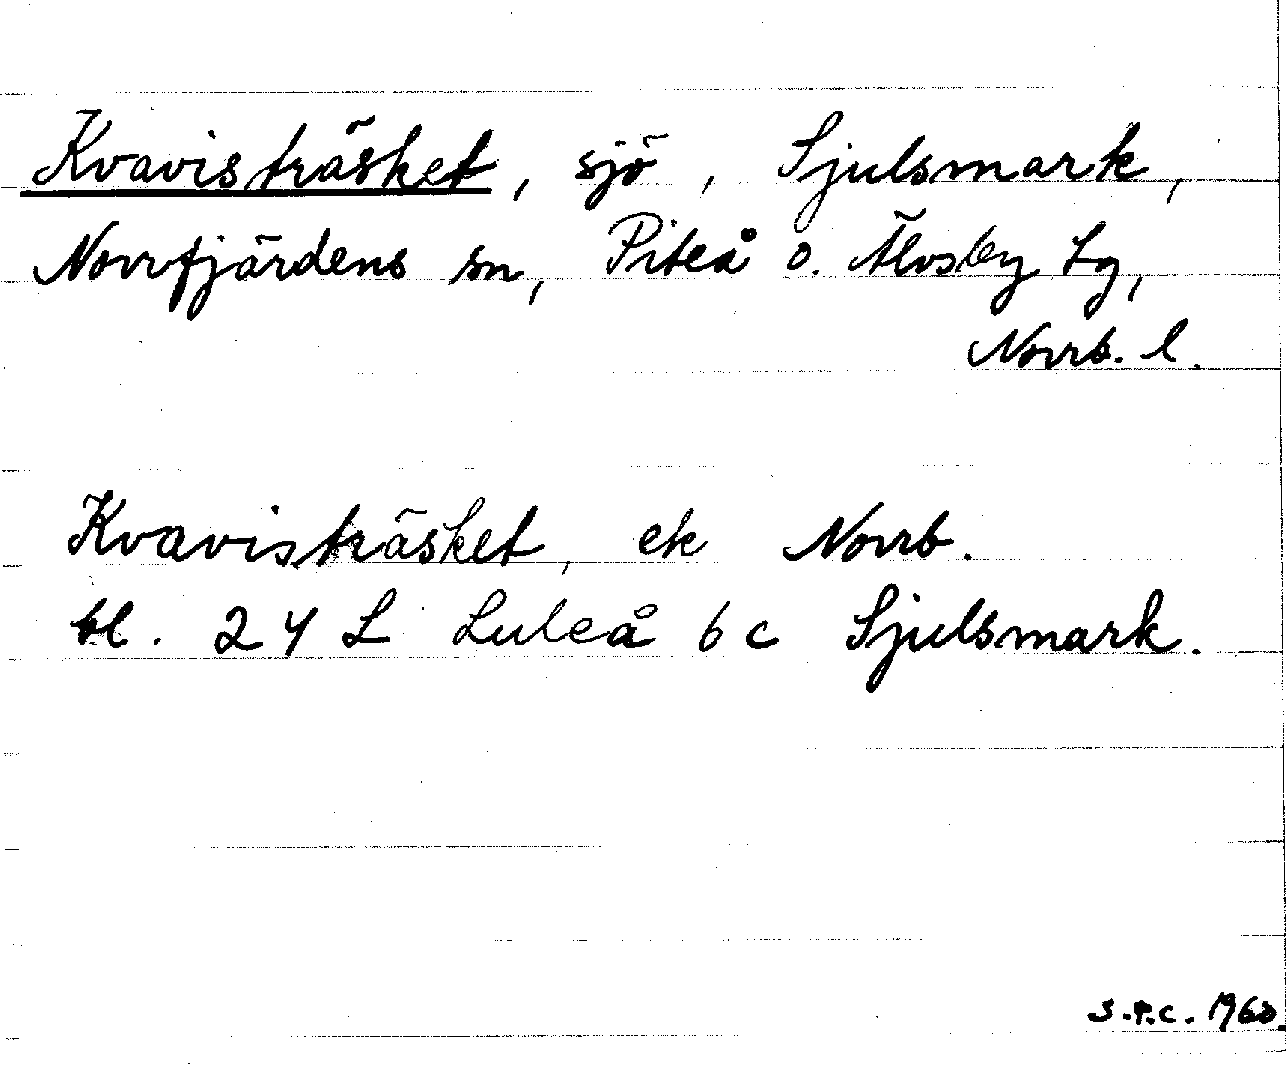 Kvavisträsket, sjö, Sjulsmark,
Norrfjärdens sn, Piteå o. Älvsby tg,
Norrb. l.
Kvavisträsket, ek Norrb.
bl. 24 L Luleå 6 c Sjulsmark.
1960.